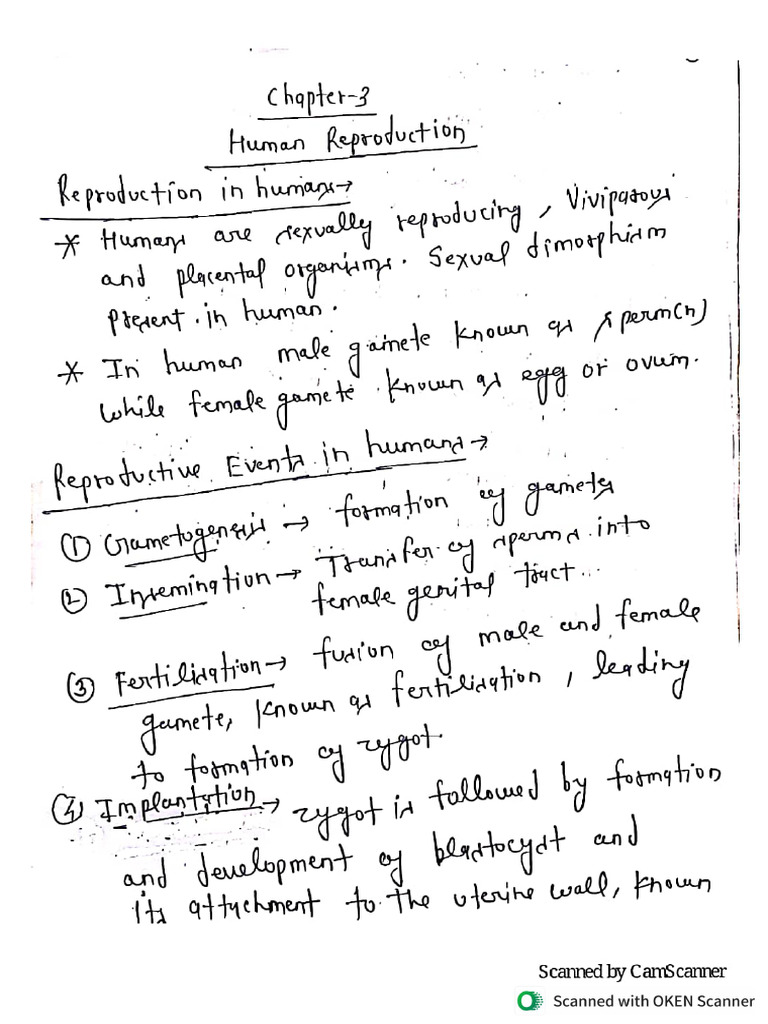 Chapter-3
Human Reproduction
Reproduction in humans→
* Humans are sexually reproducing, Viviparous
and placental organisms. Sexual dimorphism
present in human.
* In human male gamete known as sperm(n)
while female gamete known as egg or ovum.
Reproductive Events in humans→
① Gametogenesis → formation of gametes
② Insemination → Transfer of sperms into
female genital tract...
③ Fertilisation → fusion of male and female
gamete, known as fertilisation, leading
to formation of zygot.
④ Implantation → zygot is followed by formation
and development of blastocyst and
its attachment to the uterine wall, known
Scanned by CamScanner
Scanned with OKEN Scanner